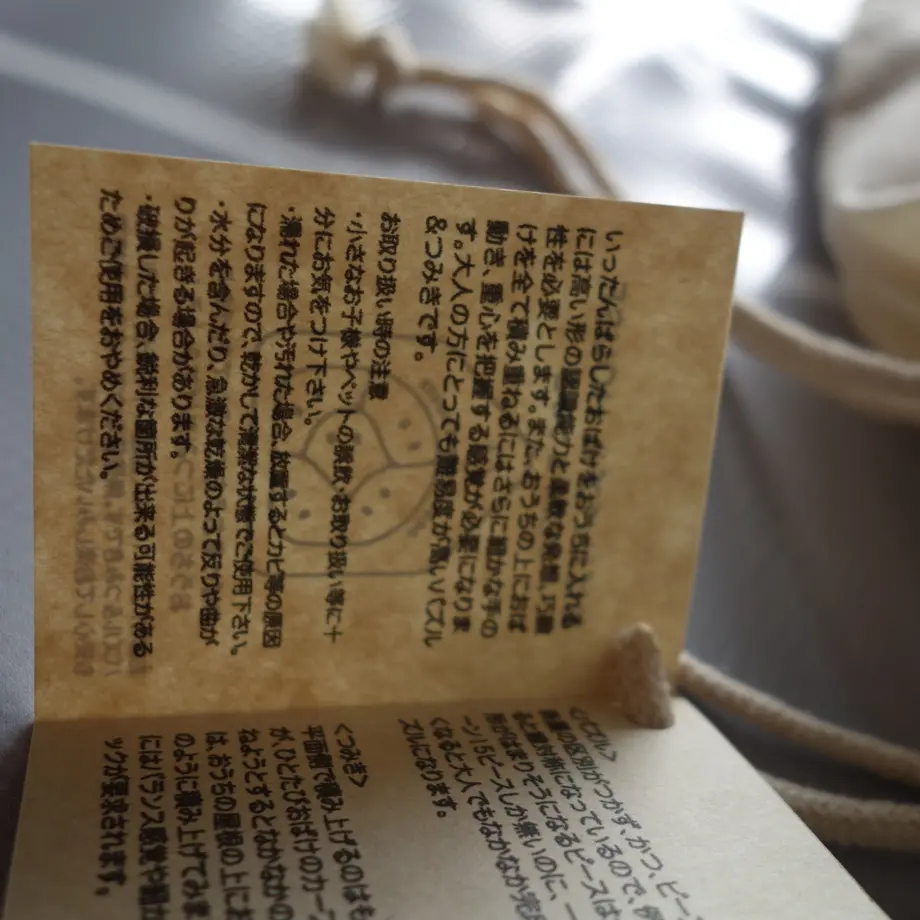 いったんばらしたおばけをおうちに入れる
には高い形の認識能力と柔軟な発想、巧緻
性を必要とします。また、おうちの上におば
けを全て積み重ねるにはさらに細かな手の
動き、重心を把握する感覚が必要になりま
す。大人の方にとっても難易度が高いパズル
&つみきです。
お取り扱い時の注意
・小さなお子様やペットの誤飲、お取り扱い等に十
分にお気をつけ下さい。
・濡れた場合や汚れた場合、放置するとカビ等の原因
になりますので、乾かして清潔な状態でご使用下さい。
・水分を含んだり、急激な乾燥のよって反りや曲が
りが起きる場合があります。
・破損した場合、鋭利な箇所が出来る可能性がある
ためご使用をおやめください。
<パズル>
表裏の区別がつかず、かつ、ピー
ると線対称になっているので、
形がはまりそうになるピースは
ーン15ピースしか無いのに、一
くなると大人でもなかなか完
ズルになります。
<つみき>
平面側で積み上げるのはも
が、ひとたびおばけのカー
ねようとするとなかなかの
は、おうちの屋根の上にお
のように積み上げてみま
にはバランス感覚や
ックが要求されます。